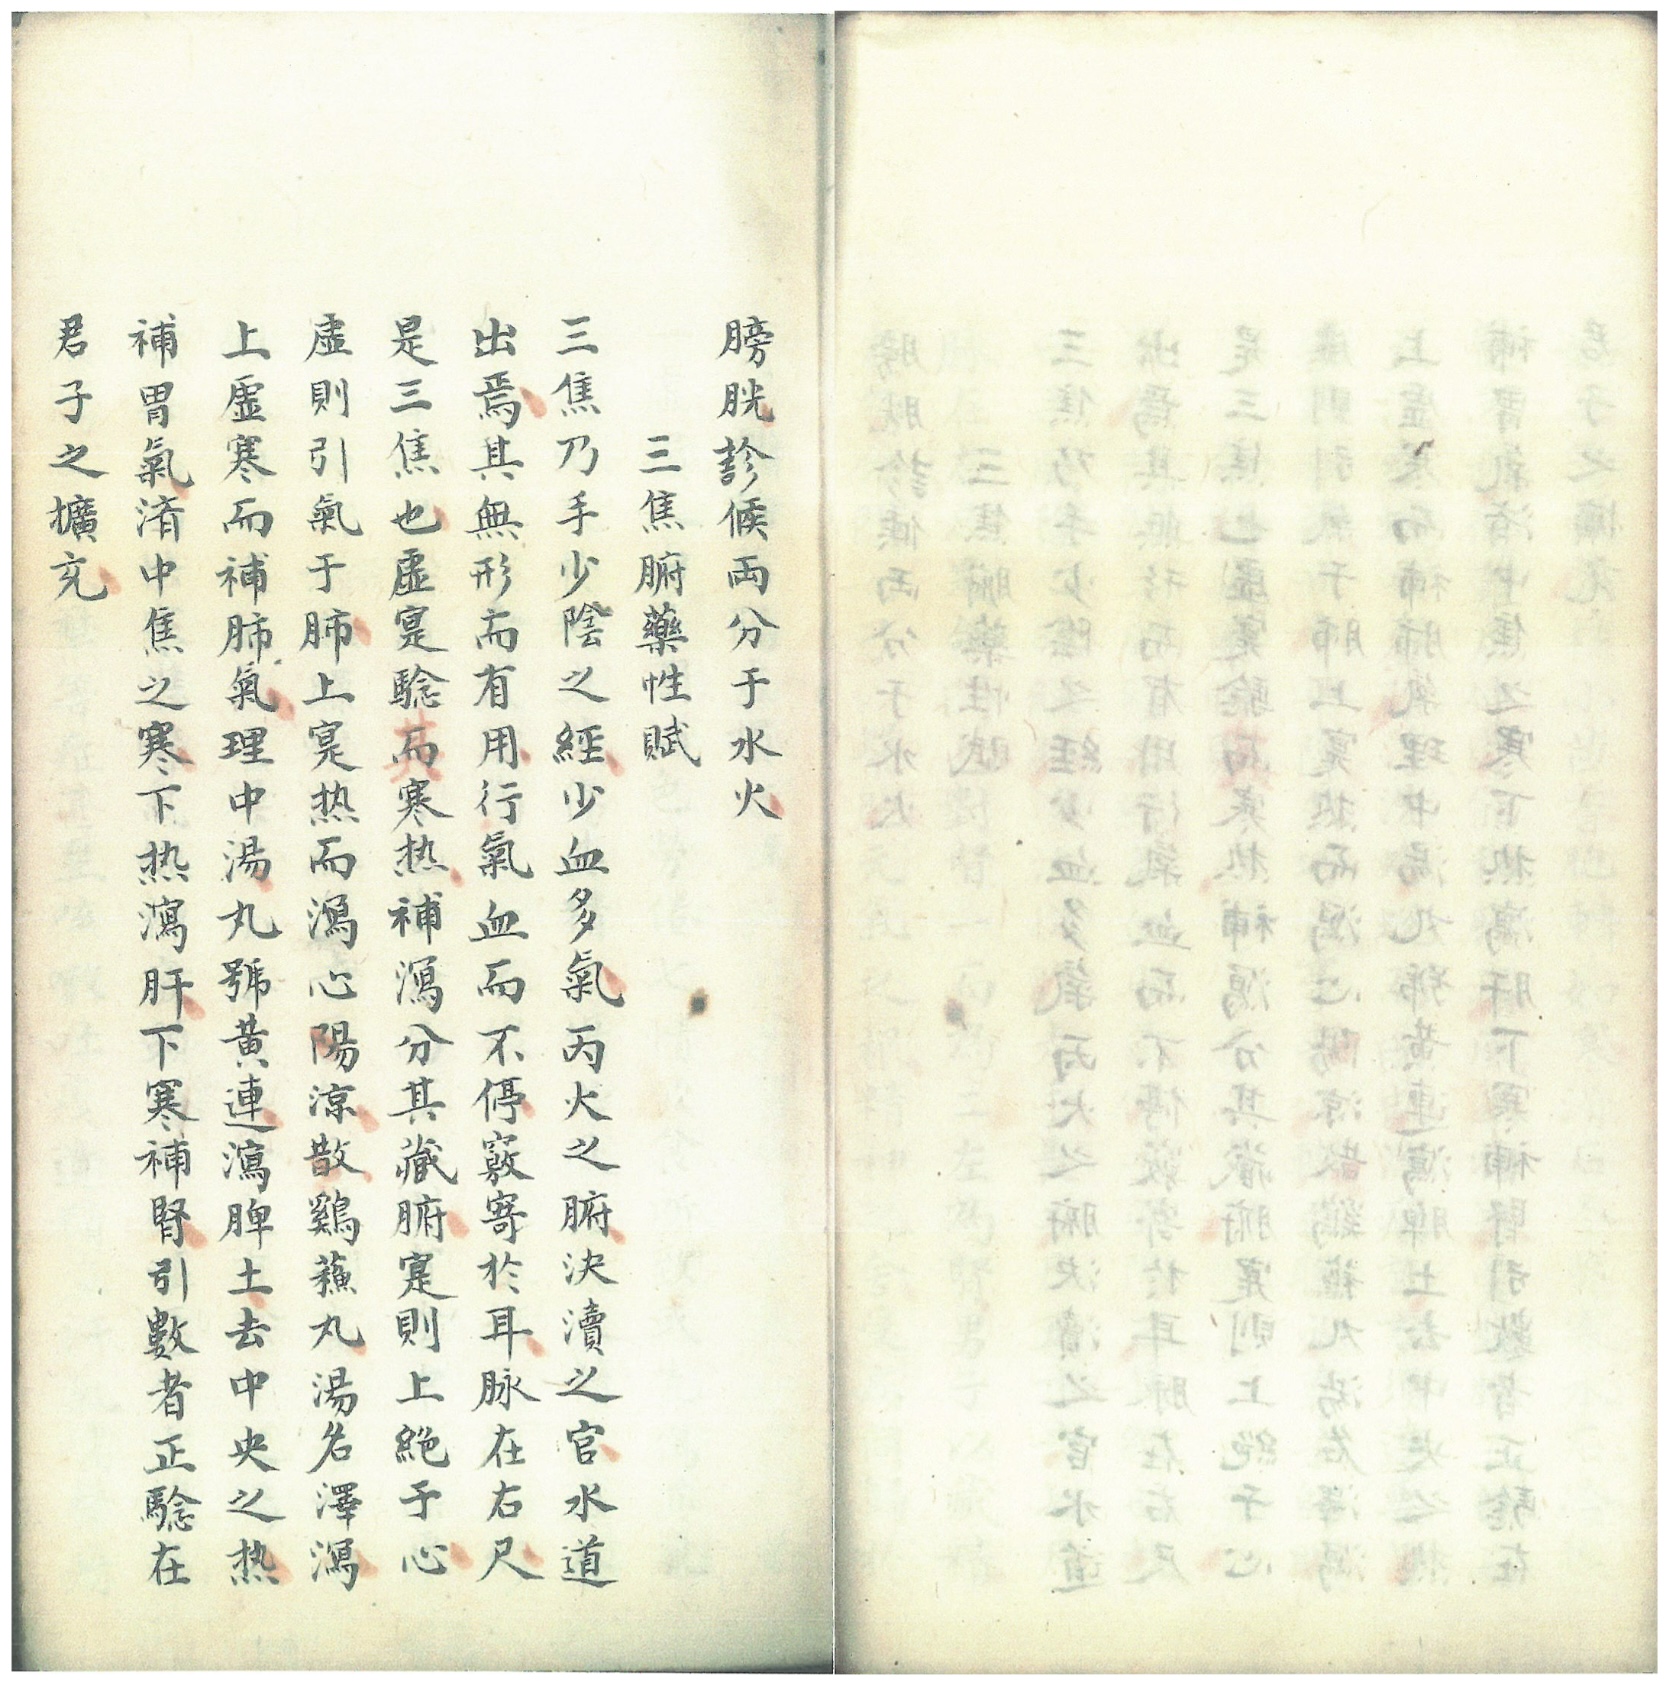 膀胱診候両分于水火
三焦腑藥性賦
三焦乃手少陰之經少血多氣丙火之腑決瀆之官水道
出焉其無形而有用行氣血而不停竅寄於耳脉在右尺
是三焦也虛寔騐而寒热補瀉分其臓腑寔則上絕于心
虛則引氣于肺上寔热而瀉心陽凉散鷄蘓丸湯名澤瀉
上虛寒而補肺氣理中湯丸號黃連瀉脾土去中央之热
補胃氣渚中焦之寒下热瀉肝下寒補腎引數者正騐在
君子之擴充